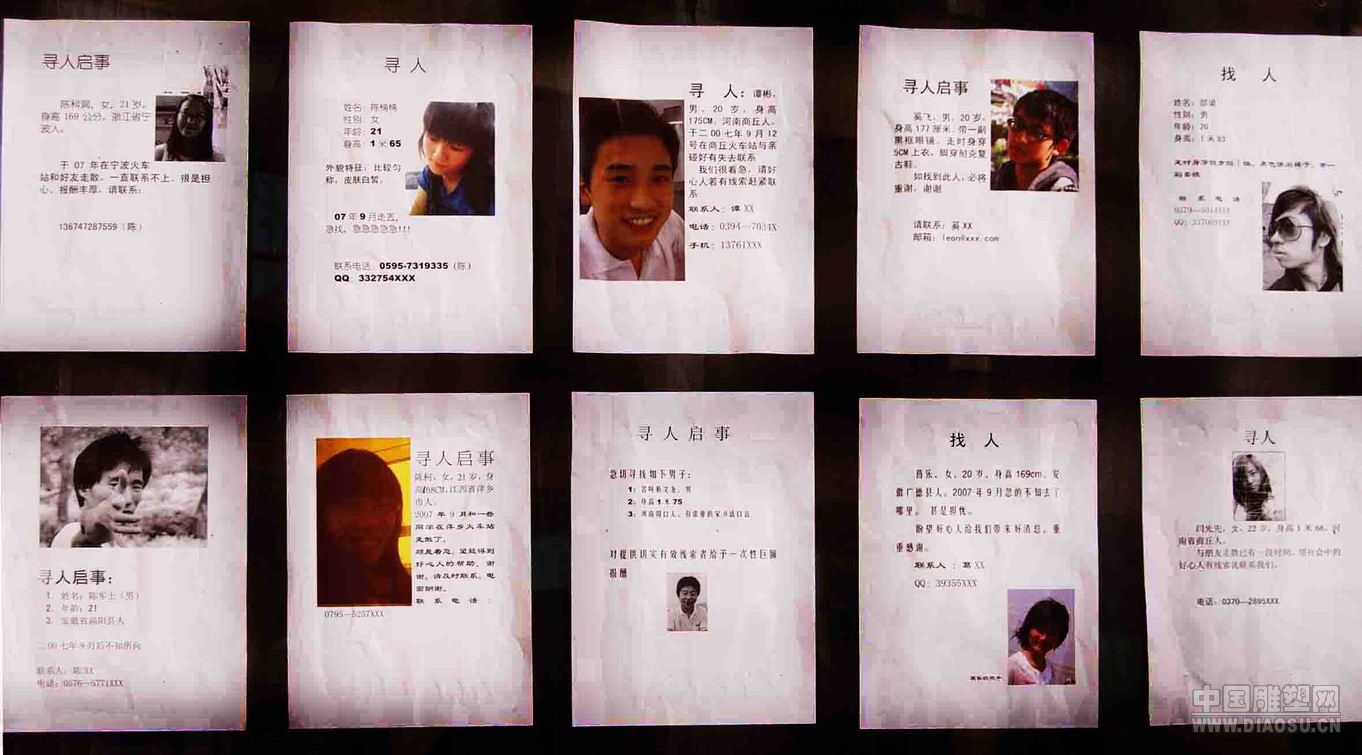 寻人启事
陈科润，女，21岁。
身高 169 公分。浙江省宁
波人。
于 07 年在宁波火车
站和好友走散，一直联系不上，很是担
心，报酬丰厚。请联系：
136747287559（陈）
寻 人
姓名：陈楠楠
性别：女
年龄：21
身高：1 米 65
外貌特征：比较匀
称，皮肤白皙。
07 年 9 月走丢，
急找，急急急急急!!!
联系电话：0595-7319335（陈）
QQ：332754XXX
寻 人：谭彬，
男，20 岁，身高
175CM，河南商丘人。
于二 00 七年 9 月 12
号在商丘火车站与亲
碰好有失去联系
我们很着急，请好
心人若有线索赶紧联
系
联系人：谭 XX
电话：0394—7034X
手机：13761XXX
寻人启事
奚飞，男，20 岁，
身高 177 厘米，带一副
黑框眼镜，走时身穿
5CM 上衣，脚穿耐克复
古鞋。
如找到此人，必将
重谢，谢谢
请联系：奚 XX
邮箱：leon@xxx.com
找 人
性别：男
年龄：20
身高：1 米 83
联 系 电 话
QQ：337069XXX
寻人启事：
1. 姓名：陈军士（男）
2. 年龄：21
3. 安徽省涡阳县人
二 00 七年 9 月后不知所向
联系人：陈 XX
电话：0576—5771XXX
寻人启事
陈柯，女，21 岁，身
高168CM，江西省萍乡
市人。
2007 年 9 月和一些
同学在萍乡火车站
走散了。
颇是着急，望能得到
好心人的帮助，谢
谢。请及时联系。电
面酬谢。
联 系 电 话 ：
0795—5257XXX
寻 人 启 事
急切寻找如下男子：
2：身高 1 米 75
对提供切实有效线索者给予一次性巨额
报酬
找 人
葛乐，女，20 岁，身高 169cm，安
徽广德县人。2007 年 9 月忽的不知去了
哪里。 甚是担忧。
盼望好心人给我们带来好消息，重
重感谢。
联系人 ：葛 XX
QQ：39355XXX
葛乐的照片
寻人
闫先先，女，22 岁，身高 1 米 68，河
南省商丘人。
与朋友走散已有一段时间，望社会中的
好心人有线索就联系我们。
电话：0370—2895XXX
中国雕塑网
WWW.DIAOSU.CN